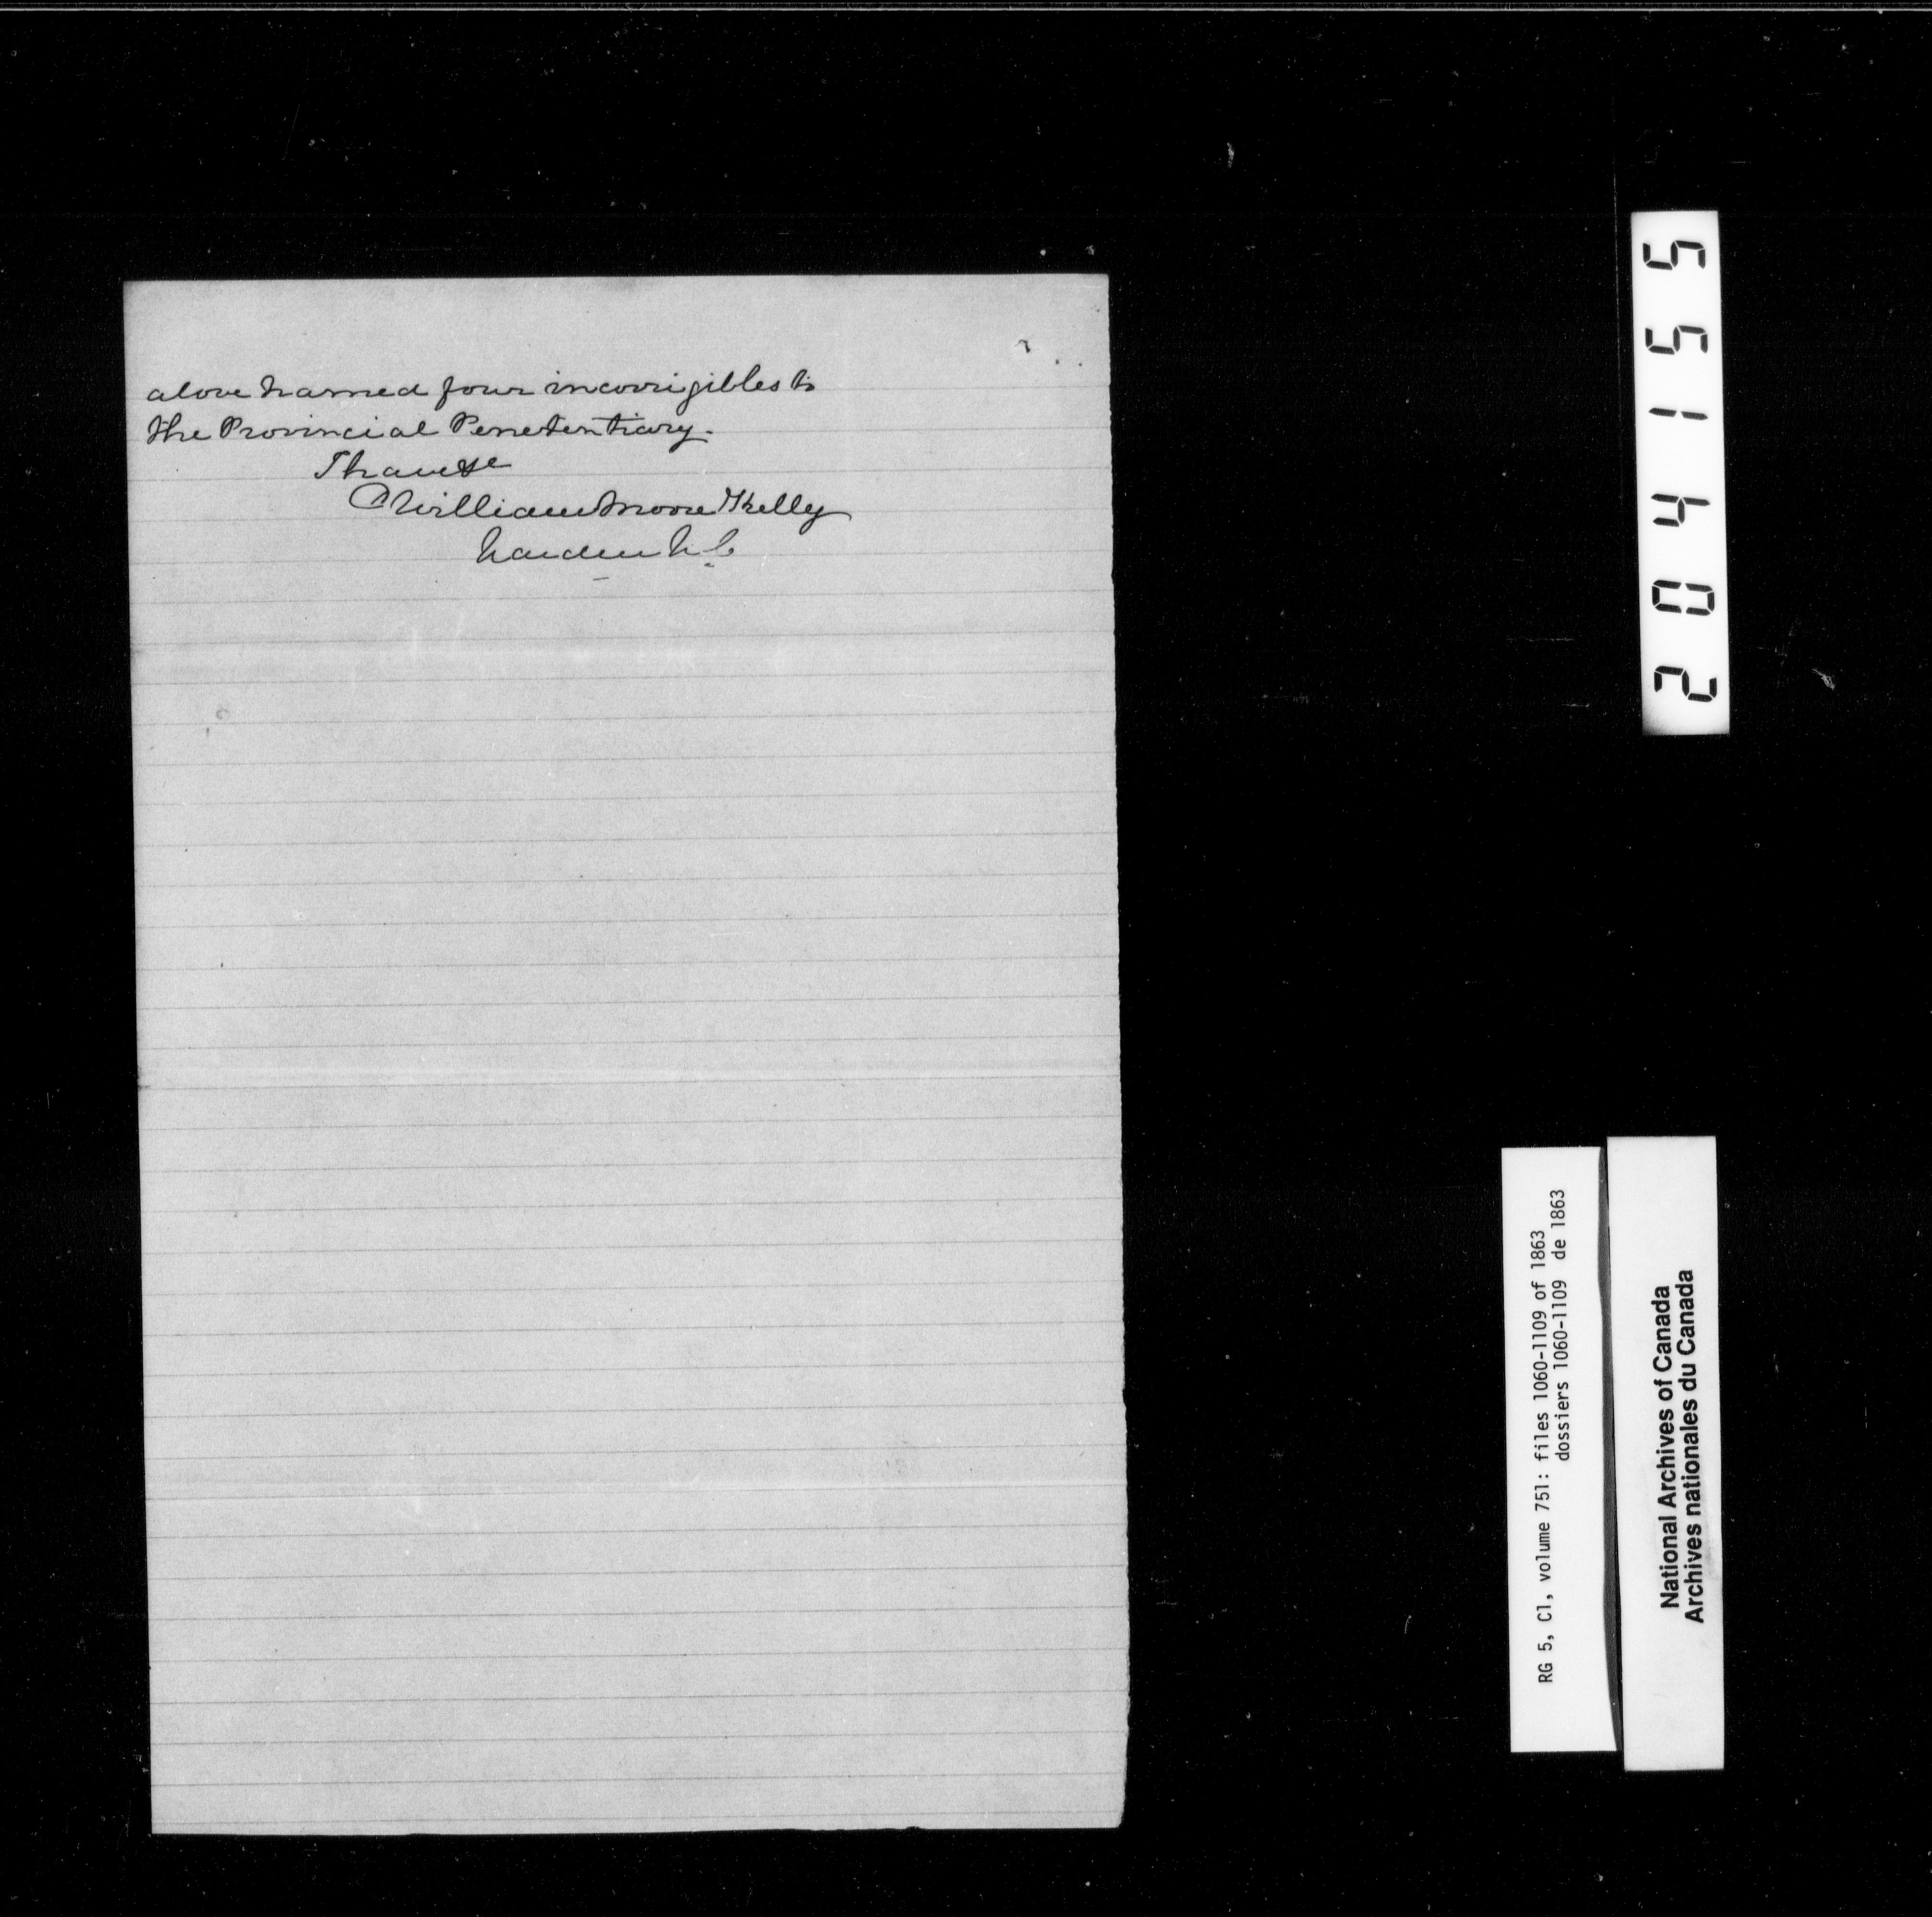 above named four incorrigibles to
the Provincial Penetentiary.
I have &c
William Moore Kelly
Warden
20 4 1 5 5
RG 5, C1, volume 751: files 1060-1109 of 1863
dossiers 1060-1109 de 1863
National Archives of Canada
Archives nationales du Canada